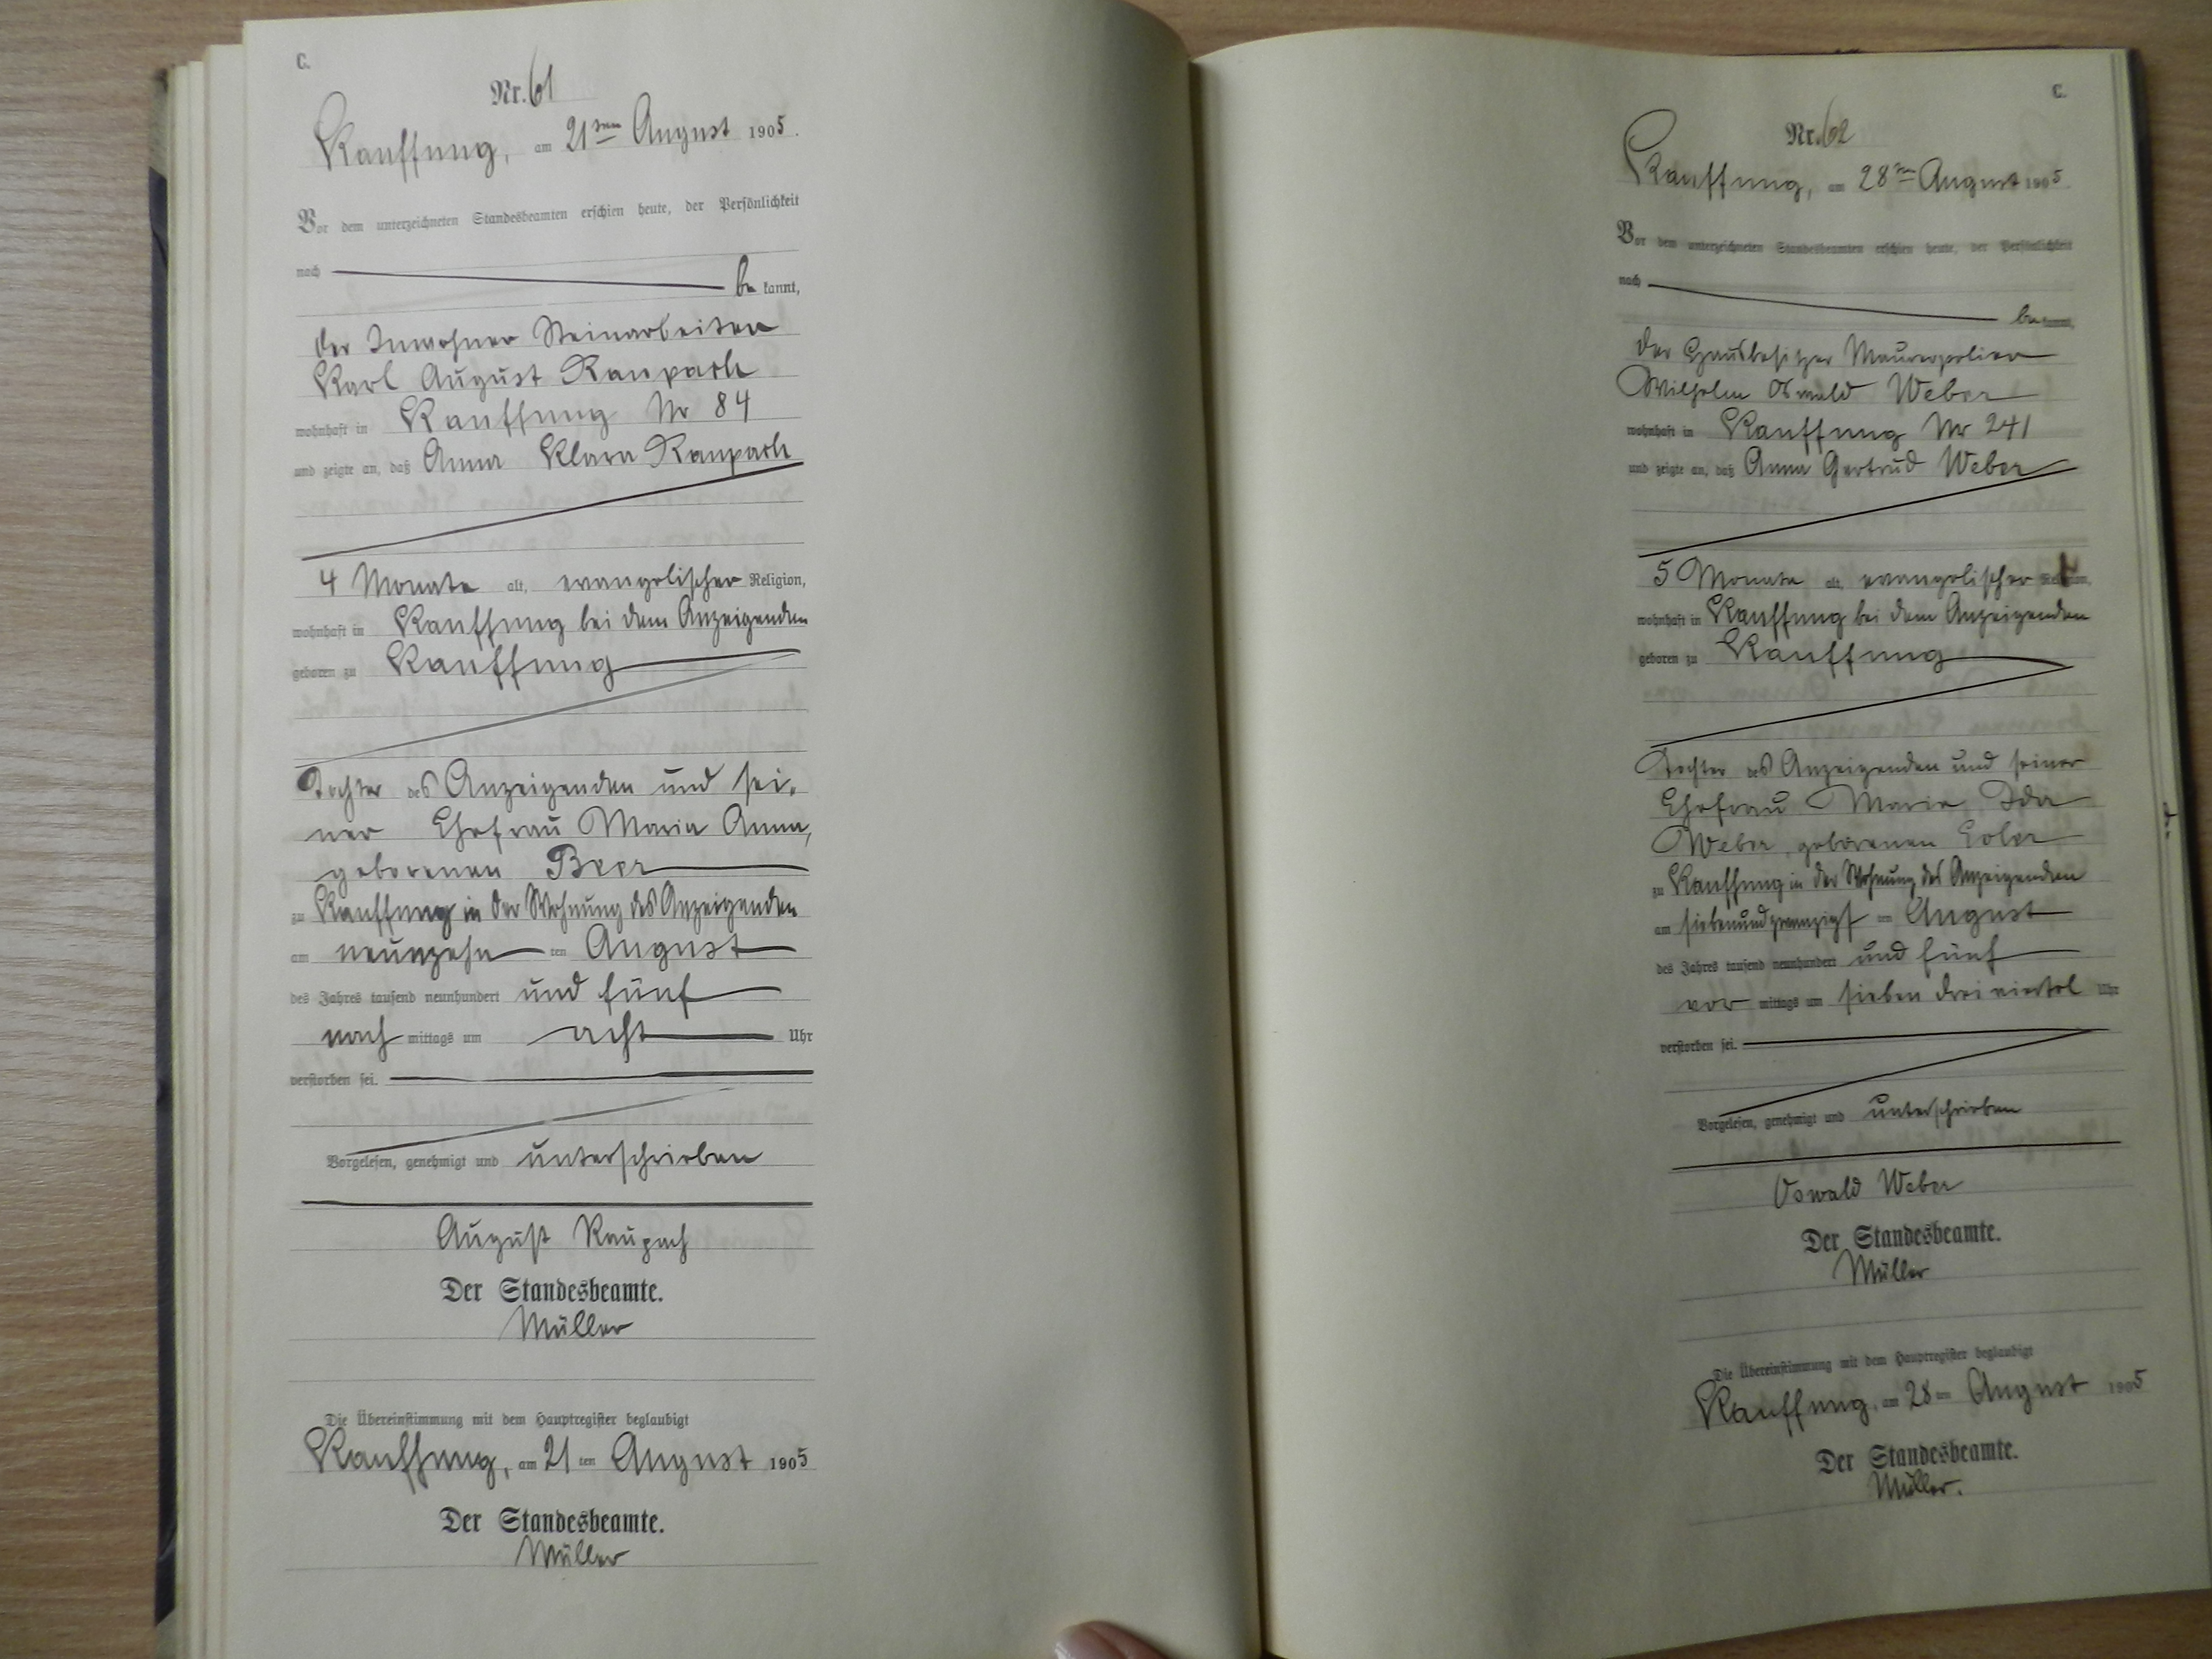 C.
Nr. 61
Kauffung, am 21ten August 1905.
Vor dem unterzeichneten Standesbeamten erschien heute, der Persönlichkeit
nach be kannt,
der Inwohner Steinarbeiter
Karl August Raupach
wohnhaft in Kauffung Nr 84
und zeigte an, daß Anna Klara Raupach
4 Monate alt, evangelischer Religion,
wohnhaft in Kauffung bei dem Anzeigenden
geboren zu Kauffung
Tochter des Anzeigenden und sei-
ner Ehefrau Maria Anna,
geborenen Beer
zu Kauffung in der Wohnung des Anzeigenden
am neunzehn ten August
des Jahres tausend neunhundert und fünf
nach mittags um acht Uhr
verstorben sei.
Vorgelesen, genehmigt und unterschrieben
August Raupach
Der Standesbeamte.
Müller
Die Übereinstimmung mit dem Hauptregister beglaubigt
Kauffung, am 21 ten August 1905
Der Standesbeamte.
Müller
C.
Nr. 62
Kauffung, am 28ten August 1905.
Vor dem unterzeichneten Standesbeamten erschien heute, der Persönlichkeit
nach be kannt,
der Hausbesitzer Maurerpolier
Wilhelm Oswald Weber
wohnhaft in Kauffung Nr 241
und zeigte an, daß Anna Gertrud Weber
5 Monate alt, evangelischer Religion,
wohnhaft in Kauffung bei dem Anzeigenden
geboren zu Kauffung
Tochter des Anzeigenden und seiner
Ehefrau Maria Ida
Weber, geborenen
zu Kauffung in der Wohnung des Anzeigenden
am siebenundzwanzigs ten August
des Jahres tausend neunhundert und fünf
vor mittags um sieben dreiviertel Uhr
verstorben sei.
Vorgelesen, genehmigt und unterschrieben
Oswald Weber
Der Standesbeamte.
Müller
Die Übereinstimmung mit dem Hauptregister beglaubigt
Kauffung, am 28 ten August 1905
Der Standesbeamte.
Müller.